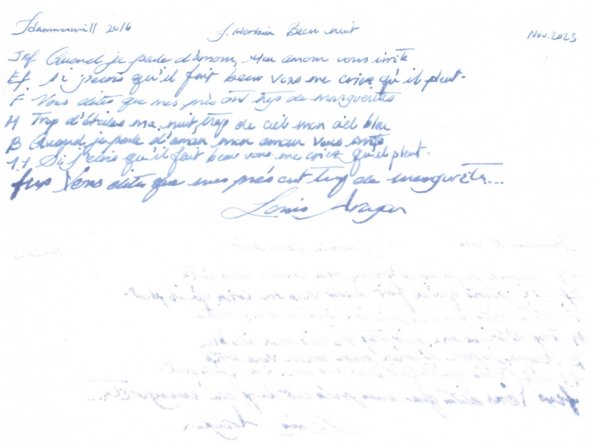 2016 J. Herbin Bleu nuit Nov. 2023
EF Quand je parle d'amour, mon amour vous irrite
EF. Si j'écris qu'il fait beau vous me criez qu'il pleut.
F Vous dites que mes prés ont trop de marguerites
M Trop d'étoiles ma nuit, trop de ciel mon ciel bleu
B Quand je parle d'amour mon amour vous irrite
1.1 Si j'écris qu'il fait beau vous me criez qu'il pleut.
Vous dites que mes prés ont trop de marguerites...
Louis Aragon